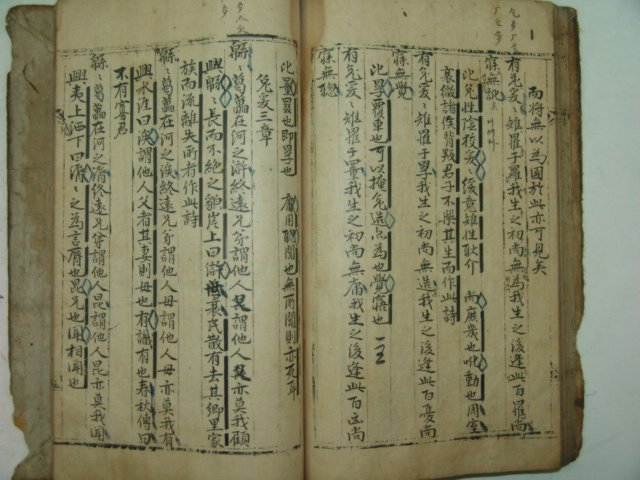 而將無以為國於此亦可見矣
有兎爰〻雉罹于羅我生之初尚無為我生之後逢此百罹尚
寐無訛
比兎性陰狡爰〻緩意雉性耿介 尚庶幾也吪動也周室
衰微諸侯背叛君子不樂其生而作此詩
有兎爰〻雉罹于罦我生之初尚無造我生之後逢此百憂尚
寐無覺
比罦覆車也可以掩兎造亦為也覺寤也
有兎爰〻雉罹于罿我生之初尚無庸我生之後逢此百凶尚
寐無聰
比罿罬也即罦也 庸用聰聞也無所聞則亦死耳
兎爰三章
緜〻葛藟在河之滸終遠兄弟謂他人父謂他人父亦莫我顧
興緜〻長而不絶之貌岸上曰滸世衰民散有去其鄉里家
族而流離失所者作此詩
緜〻葛藟在河之涘終遠兄弟謂他人母謂他人母亦莫我有
興水涯曰涘謂他人父者其妻則母也有識有也春秋傳曰
不有寡君
緜〻葛藟在河之漘終遠兄弟謂他人昆謂他人昆亦莫我聞
興夷上洒下曰漘〻之為言脣也昆兄也聞相聞也